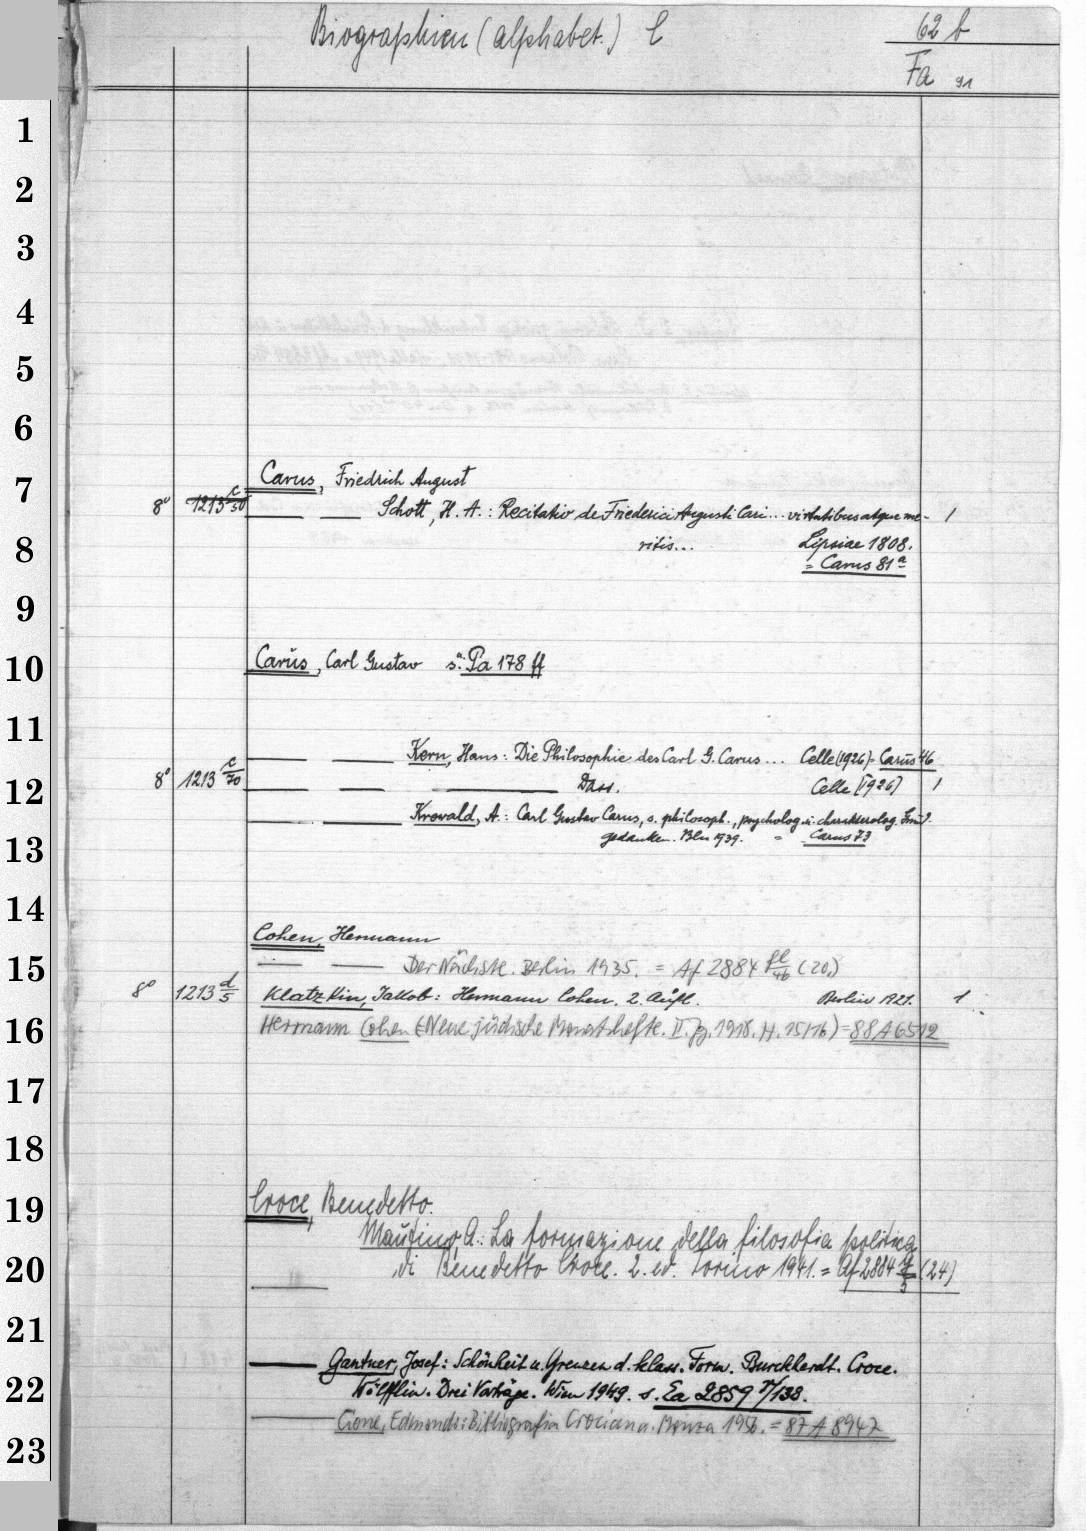 Biographien (alphabet.) C 62 b
Fa 91
1
2
3
4
5
6
Carus, Friedrich August
7
8° 1213 c/50 Schott, H. A.: Recitatio de Friederici Augusti Cari... virtutibus atque me- 1
8 ritis... Lipsiae 1808.
= Carus 81 a
9
10 Carus, Carl Gustav s. Pa 178 ff
11
Kern, Hans: Die Philosophie des Carl G. Carus ... Celle (1926) = Carus 46
8° 1213 c/70 Dass. Celle [1926] 1
12
Krewald, A.: Carl Gustav Carus, s. philosoph., psycholog. u. charakterolog.
13 gedanken. Bln 1939. = Carus 73
14
Cohen, Hermann
15 Der Nächste. Berlin 1935. = Af 2884 (20)
8° 1213 d/5 Klatzkin, Jakob: Hermann Cohen. 2. Aufl. Berlin 1921. 1
16 Hermann Cohen (=Neue jüdische Monatshefte. II. Jg. 1918. H. 15/16) = 88 A 6512
17
18
19 Croce, Benedetto.
Mautino, A.: La formazione della filosofia politica
20 di Benedetto Croce. 2. ed. Torino 1941. = Af 2884 g/5 (24)
21
Gantner, Josef: Schönheit u. Grenzen d. klass. Form. Burckhardt. Croce.
22 Wölfflin. Drei Vorträge. Wien 1949. s. Ea 2859 r/138.
Cione, Edmondo: Bibliografia Crociana. Monza 1956. = 87 A 8947
23